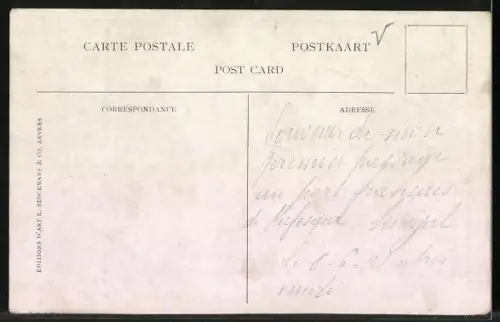 CARTE POSTALE
POSTKAART
POST CARD
CORRESPONDANCE
ADRESSE
EDITIONS D'ART E. STOCKMANS & CO, ANVERS
Souvenir de mon
premier passage
au port français
de Rufisque Sénégal
Le 6-6-21
midi